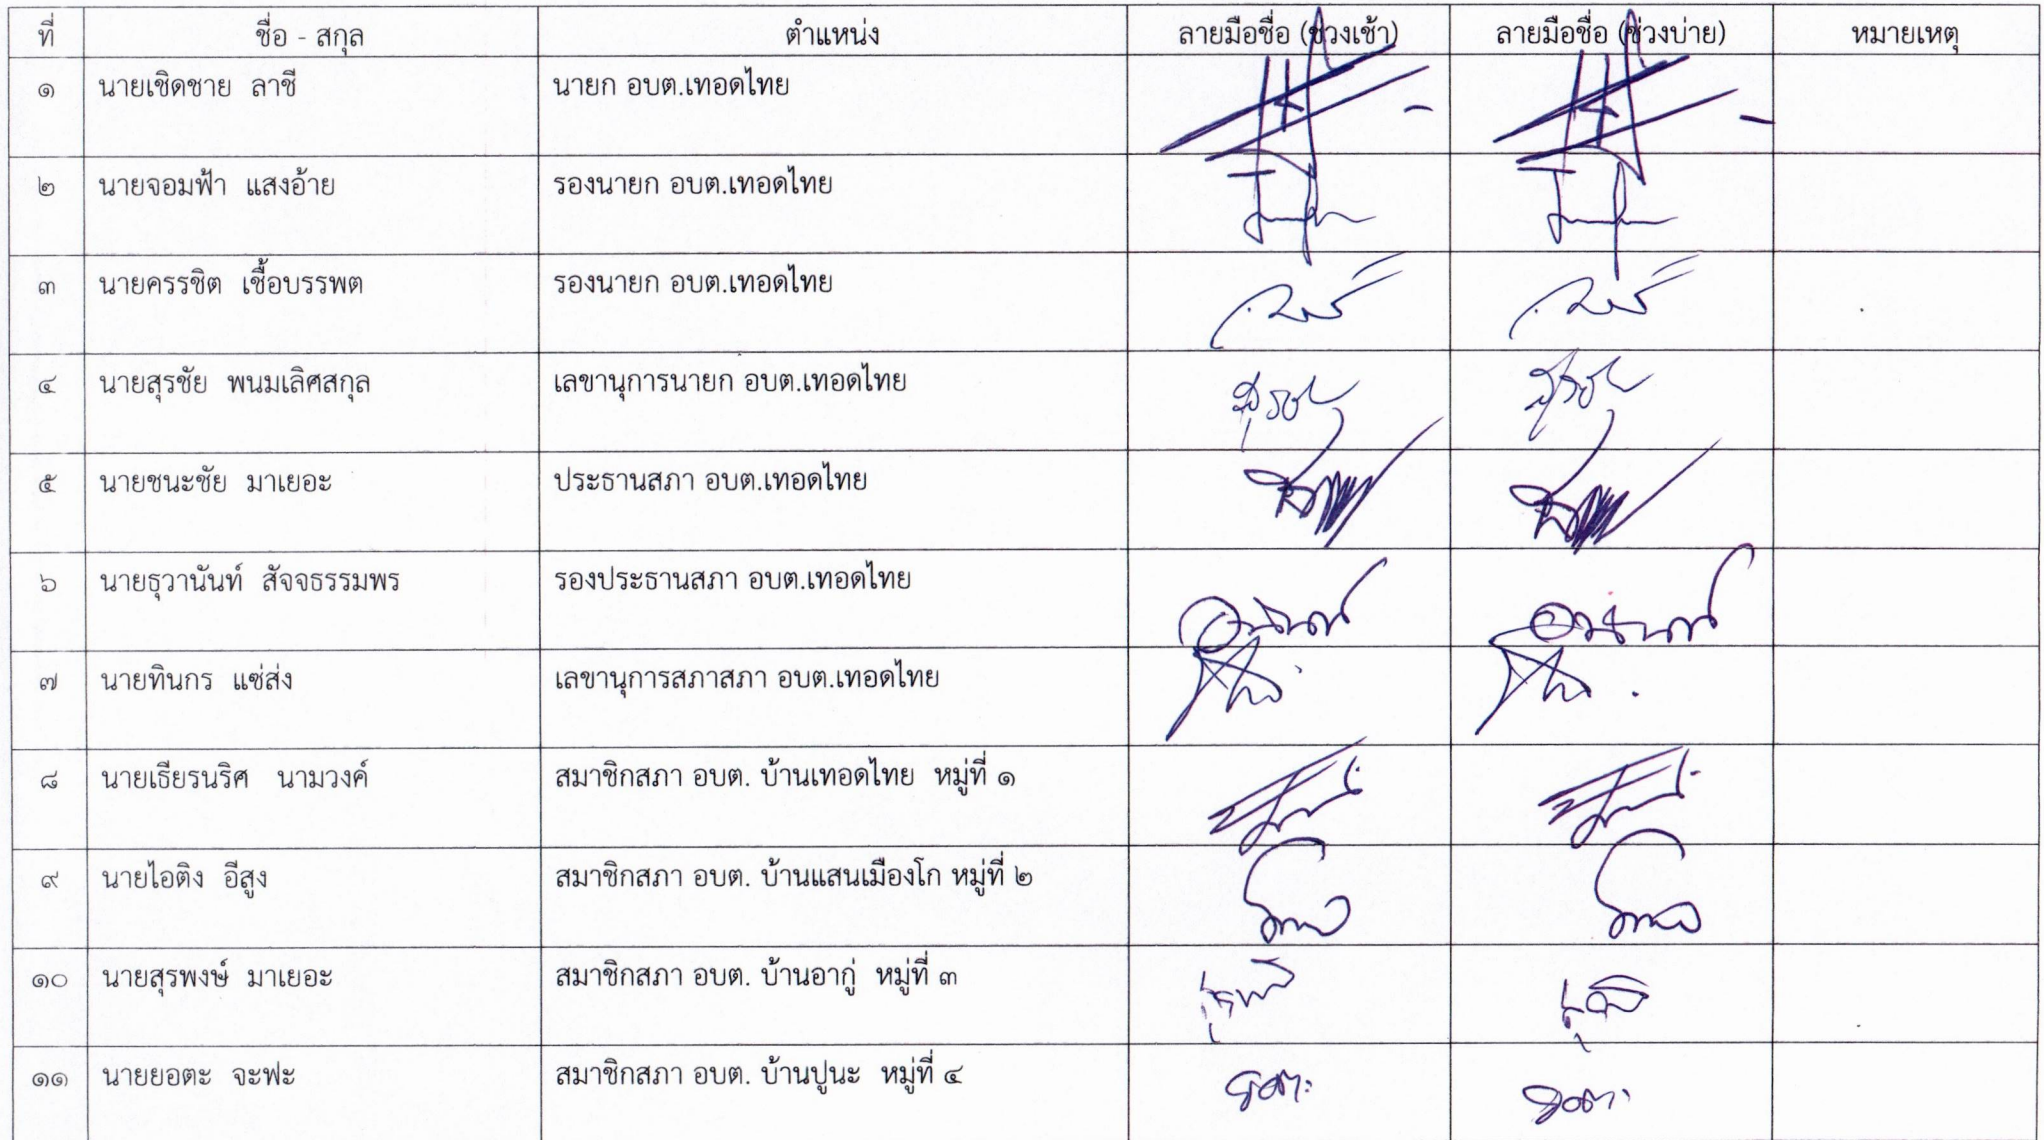 ที่ ชื่อ - สกุล ตำแหน่ง ลายมือชื่อ (ช่วงเช้า) ลายมือชื่อ (ช่วงบ่าย) หมายเหตุ
๑ นายเชิดชาย ลาชี นายก อบต.เทอดไทย
๒ นายจอมฟ้า แสงอ้าย รองนายก อบต.เทอดไทย
๓ นายครรชิต เชื้อบรรพต รองนายก อบต.เทอดไทย
๔ นายสุรชัย พนมเลิศสกุล เลขานุการนายก อบต.เทอดไทย
๕ นายชนะชัย มาเยอะ ประธานสภา อบต.เทอดไทย
๖ นายธุวานันท์ สัจจธรรมพร รองประธานสภา อบต.เทอดไทย
๗ นายทินกร แซ่ส่ง เลขานุการสภาสภา อบต.เทอดไทย
๘ นายเธียรนริศ นามวงค์ สมาชิกสภา อบต. บ้านเทอดไทย หมู่ที่ ๑
๙ นายไอติง อีสูง สมาชิกสภา อบต. บ้านแสนเมืองโก หมู่ที่ ๒
๑๐ นายสุรพงษ์ มาเยอะ สมาชิกสภา อบต. บ้านอากู่ หมู่ที่ ๓
๑๑ นายยอตะ จะฟะ สมาชิกสภา อบต. บ้านปูนะ หมู่ที่ ๔ ยอตะ ยอตะ